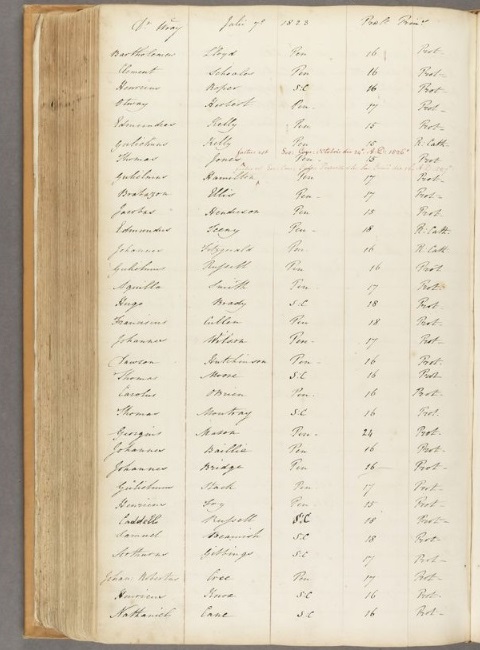 Dr Wray July 7th 1823
Bartholomeus Lloyd Pen 16 Prot.
Clement Schoales Pen 16 Prot
Henricus Roper S.C 16 Prot
Otway Herbert Pen. 17 Prot
Edmundus Kelly Pen 15 Prot.
Gulielmus Kelly Pen 15 R. Cath.
Thomas Jones Pen. 15 Prot
Gulielmus Hamilton Pen 17 Prot.
Brabazon Ellis Pen. 17 Prot.
Jacobus Henderson Pen 15 Prot.
Edmundus Pen. 18 R. Cath.
Johannes Fitzgerald Pen 16 R. Cath.
Gulielmus Russell Pen 16 Prot
Aquilla Smith Pen 17 Prot.
Hugo Brady S.C 18 Prot.
Franciscus Cullen Pen 18 Prot.
Johannes Wilson Pen. 17 Prot
Dawson Hutchinson Pen. 16 Prot.
Thomas Moore S.C 16 Prot
Carolus OBrien Pen. 16 Prot.
Thomas S.C 16 Prot.
Georgius Mason Pen. 24 Prot.
Johannes Baillie Pen 16 Prot.
Johannes Bridge Pen 16 Prot.
Gulielmus Mack Pen 17 Prot.
Henricus Pen 15 Prot.
Caddell Russell S.C 18 Prot.
Samuel Beamish S.C 18 Prot.
Arthurus Gibbings S.C 17 Prot.
Johan. Pen 17 Prot.
Henricus S.C 16 Prot.
Nathaniel Cane S.C 16 Prot.